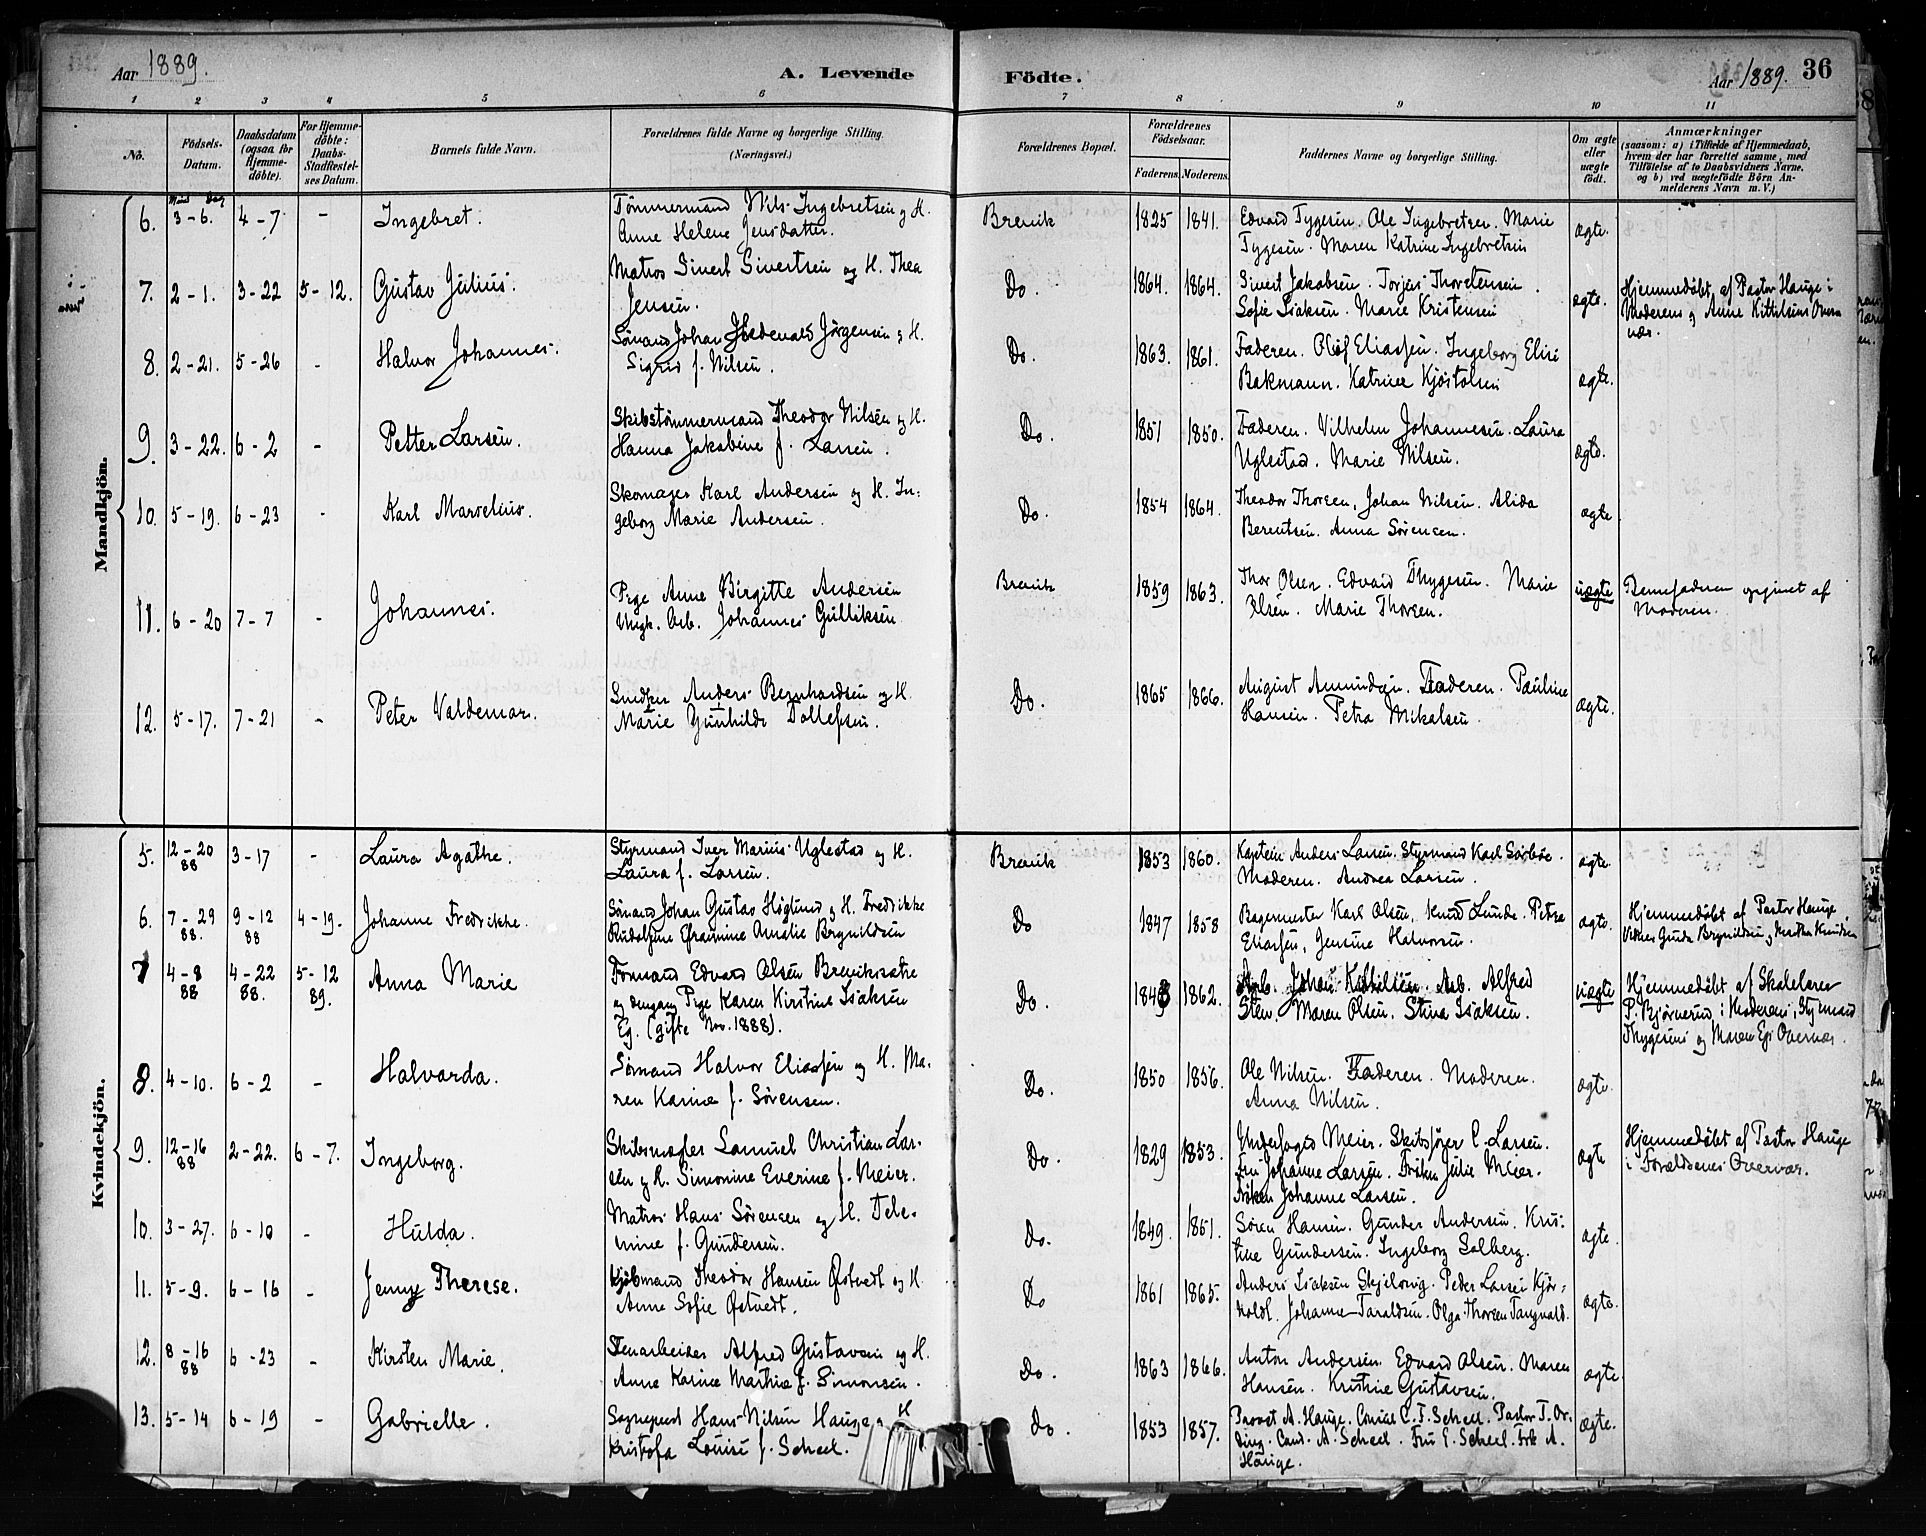 Aar 1889. A. Levende Födte. Aar 1889. 36
1 2 3 4 5 6 7 8 9 10 11
No. Födsels-Datum. Daabsdatum (ogsaa for Hjemme-döbte). For Hjemme-döbte: Daabs-Stadfæstel-ses Datum. Barnets fulde Navn. Forældrenes fulde Navne og borgerlige Stilling. (Næringsvei.) Forældrenes Bopæl. Forældrenes Födselsaar. Faderens. Moderens. Faddernes Navne og borgerlige Stilling. Om ægte eller uægte födt. Anmærkninger
(saasom: a) i Tilfælde af Hjemmedaab, hvem der har forrettet samme, med Tilföielse af to Daabsvidners Navne, og b) ved uægtefödte Börn An-melderens Navn m. V.)
Mandkjön.
6. 3-6. 4-7 - Ingebret. Tömmermand Nils Ingebretsen og H. Brevik 1825 1841. Edvard Tygesen. Ole Ingebretsen. Marie ægte.
Anne Helene Jensdatter. Tygesen. Maren Katrine Ingebretsen
7. 2-1. 3-22 5-12. Gustav Julius. Matros Sivert Sivertsen og H. Thea Do 1864. 1864. Sivert Jakobsen. Torjus Thorstensen. ægte. Hjemmedöbt af Pastor Hauge i
Jensen. Sofie Isaksen. Marie Kristensen Moderens og Anne Kittilsens Overvær.
8. 2-21. 5-26 - Halvor Johannes. Sömand Johan Hedevald Jörgensen og H. Do. 1863. 1861. Faderen. Olof Eliassen. Ingeborg Elise ægte.
Sigrid f. Nilsen. Bakmann. Katrine Kjöstolsen
9. 3-22. 6-2 - Petter Larsen. Skibstömmermand Theodor Nilsen og H. Do. 1851 1850. Faderen. Vilhelm Johannesen. Laura ægte.
Hanna Jakobine f. Larsen. Uglestad. Marie Nilsen.
10. 5-19. 6-23 - Karl Marselius. Skomager Karl Andersen og H. In- Do. 1854 1864. Theodor Thorsen, Johan Nilsen. Alida ægte
geborg Marie Andersen. Berentsen. Anna Sörensen.
11. 6-20 7-7 - Johannes. Pige Anne Birgitte Andersen Brevik 1859 1863. Thor Olsen. Edvard Thygesen. Marie uægte Barnefaderen opgivet af
Ungk. Arb. Johannes Gulliksen Olsen. Marie Thorsen. Moderen.
12. 5-17. 7-21 - Peter Valdemar. Snedker Anders Bernhardsen og H. Do. 1865 1866. August Amundsen. Faderen. Pauline ægte.
Marie Gunhilde Tollefsen. Hansen. Petra Mikalsen.
Kvindekjön.
5. 12-20 88 3-17 - Laura Agathe. Styrmand Iver Marius Uglestad og H. Brevik 1853 1860. Kaptein Anders Larsen. Styrmand Karl Sörböe. ægte.
Laura f. Larsen. Moderen. Andrea Larsen.
6. 7-29 88. 9-12 88 4-19. Johanne Fredrikke. Sömand Johan Gustav Höglund og H. Fredrikke Do 1847 1858 Bagermester Karl Olsen, Knud Lunde. Petra ægte. Hjemmedöbt af Pastor Hauge,
Rudolfine Efraimine Amalie Brynildsen Eliassen, Jensine Halvorsen. Vidner Gurda Brynildsen og Marthe Knudsen
7 4-8 88 4-22 88. 5-12 89. Anna Marie Formand Edvard Olsen Breviksætre Do. 1848 1862. Arb. Johan Kittilsen. Arb. Alfred uægte Hjemmedöbt af Skolelærer
og dengang Pige Karen Kirstine Isaksen Sten. Maren Olsen. Stina Isaksen. P. Björnerud, i Moderens, Styrmand
Eg. (gifte Nov. 1888). Thygesens og Maren Egs Overvær.
8. 4-10. 6-2 - Halvarda. Sömand Halvor Eliassen og H. Ma- Do. 1850 1856. Ole Nilsen. Faderen. Moderen. ægte.
ren Karine f. Sörensen. Anna Nilsen.
9. 12-16 88 2-22. 6-7. Ingeborg. Skibsmægler Samuel Christian Lar- Do. 1829 1853. Underfoged Meier. Skibsförer C. Larsen. ægte Hjemmedöbt af Pastor Hauge
sen og H. Simonine Everine f. Meier. Fru Johanne Larsen. Fröken Julie Meier. i Forældrenes Overvær.
Fröken Johanne Larsen.
10. 3-27. 6-10 - Hulda. Matros Hans Sörensen og H. Tele- Do. 1849. 1851. Sören Hansen. Gunder Andersen. Kris- ægte.
mine f. Gundersen. tine Gundersen. Ingeborg Solberg.
11. 5-9. 6-16 - Jenny Therese. Kjöbmand Theodor Hansen Östvedt og H. Do 1861 1865. Anders Isaksen Skjelsvig. Peder Larsen Kjör- ægte.
Anne Sofie Östvedt. holdt. Johanne Taraldsen. Olga Thorsen Tangvald.
12. 8-16 88 6-23 - Kirsten Marie. Stenarbeider Alfred Gustavsen og H. Do. 1863 1866. Anton Andersen. Edvard Olsen. Maren ægte.
Anne Karine Mathie f. Simonsen. Hansen. Kristine Gustavsen.
13. 5-14 6-19 - Gabrielle. Sogneprest Hans Nilsen Hauge og H. Do. 1853 1857. Provst A. Hauge. Consul C. F. Scheel. Pastor T. Or- ægte.
Kristofa Louise f. Scheel. ding. Cand. A. Scheel. Fru E. Scheel. Frk A.
Hauge.